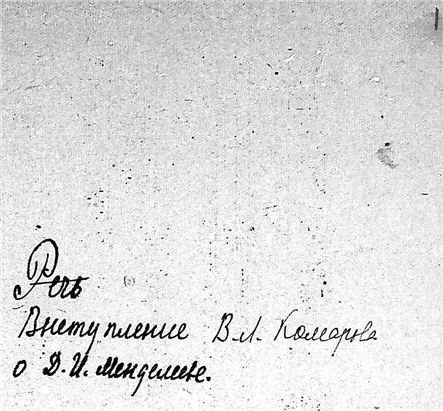 Речь
Внступление В.Л. Комарова
о Д.И. Менделееве.